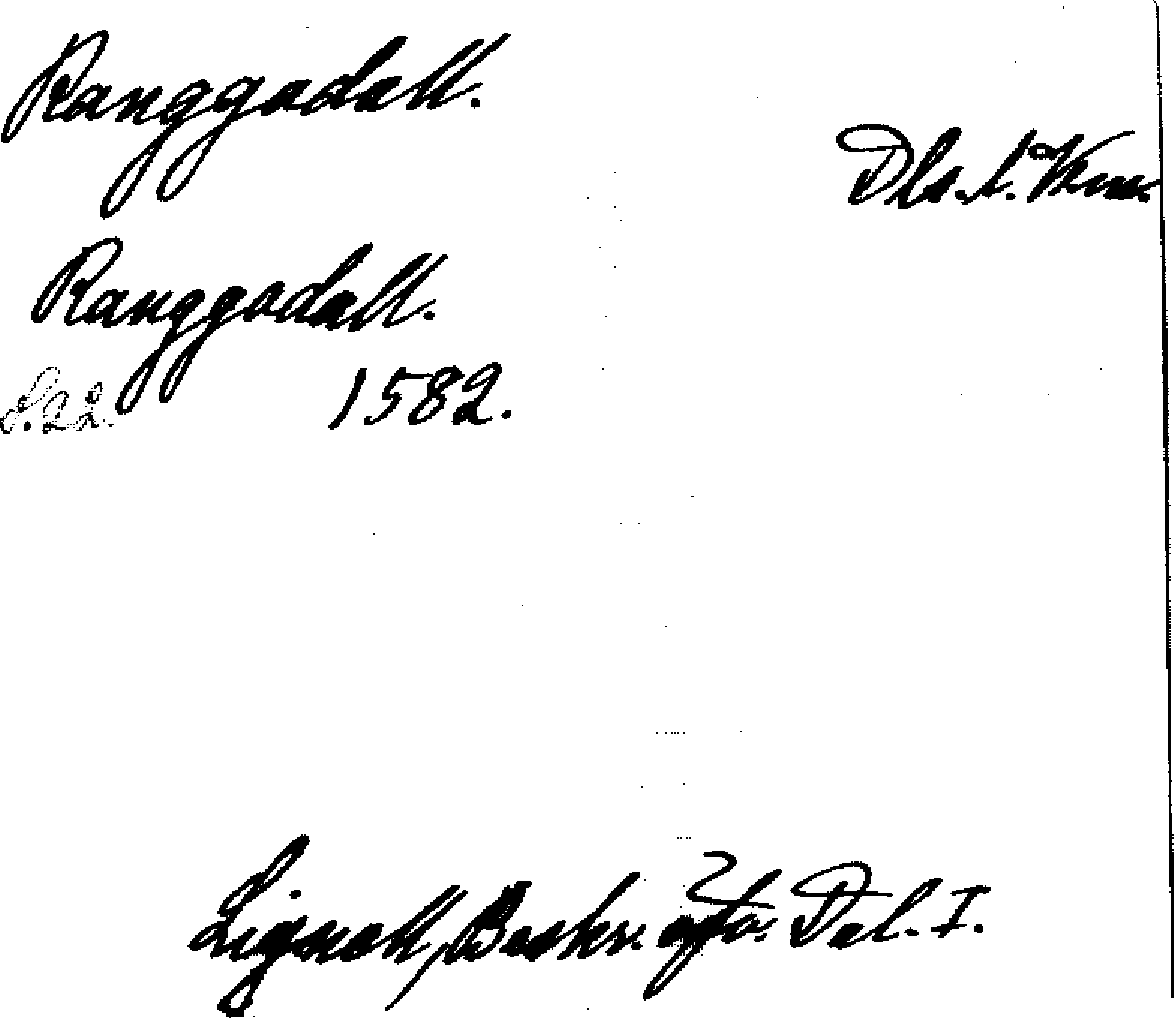 Ranggodall.
Dls.
Ranggodall.
S.22. 1582.
Lignell, Beskr. öfv. Dal. I.